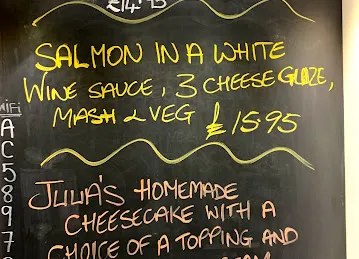 £14.95
SALMON IN A WHITE
WINE SAUCE, 3 CHEESE GLAZE,
MASH & VEG £15.95
JULIA'S HOMEMADE
CHEESECAKE WITH A
CHOICE OF A TOPPING AND
WiFi
A
C
5
8
9
7